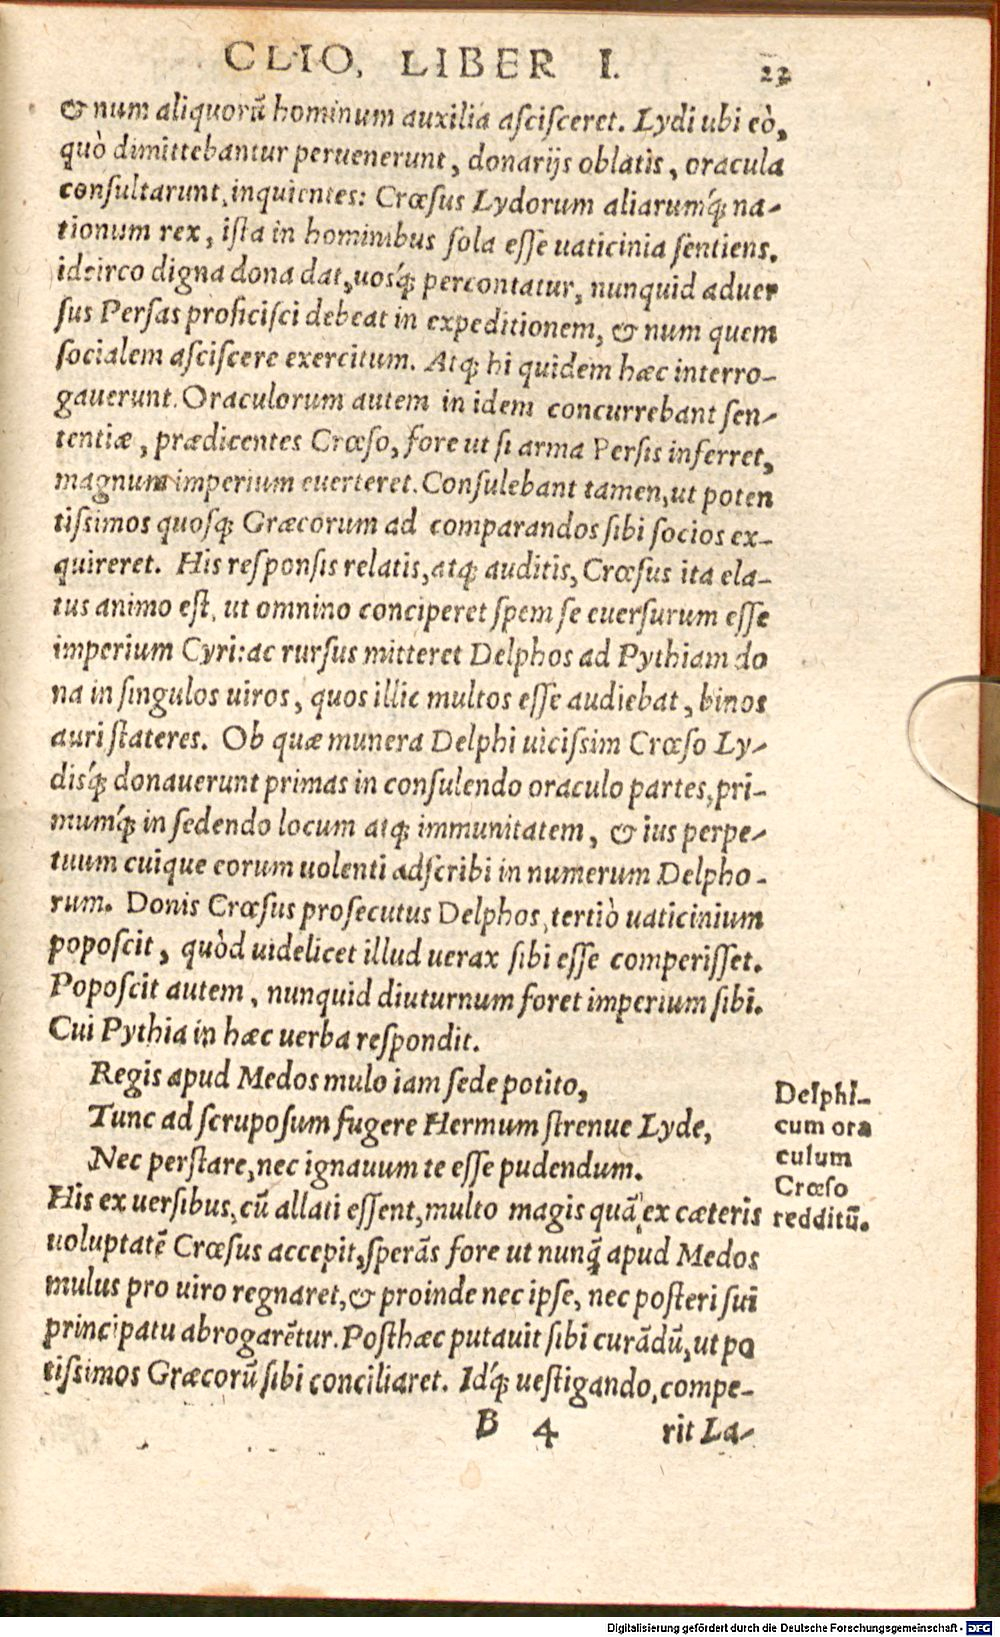 CLIO, LIBER I. 23
& num aliquorũ hominum auxilia ascisceret. Lydi ubi eò,
quò dimittebantur peruenerunt, donarijs oblatis, oracula
consultarunt, inquientes: Crœsus Lydorum aliarumq́; na-
tionum rex, ista in hominibus sola esse uaticinia sentiens.
idcirco digna dona dat, uosq́; percontatur, nunquid aduer
sus Persas proficisci debeat in expeditionem, & num quem
socialem asciscere exercitum. Atq; hi quidem hæc interro-
gauerunt. Oraculorum autem in idem concurrebant sen-
tentiæ, prædicentes Crœso, fore ut si arma Persis inferret,
magnum imperium euerteret. Consulebant tamen, ut poten
tissimos quosq; Græcorum ad comparandos sibi socios ex-
quireret. His responsis relatis, atq; auditis, Crœsus ita ela-
tus animo est, ut omnino conciperet spem se euersurum esse
imperium Cyri: ac rursus mitteret Delphos ad Pythiam do
na in singulos uiros, quos illic multos esse audiebat, binos
auri stateres. Ob quæ munera Delphi uicissim Crœso Ly-
disq́; donauerunt primas in consulendo oraculo partes, pri-
mumq́; in sedendo locum atq; immunitatem, & ius perpe-
tuum cuique eorum uolenti adscribi in numerum Delpho-
rum. Donis Crœsus prosecutus Delphos, tertiò uaticinium
poposcit, quòd uidelicet illud uerax sibi esse comperisset.
Poposcit autem, nunquid diuturnum foret imperium sibi.
Cui Pythia in hæc uerba respondit.
Regis apud Medos mulo iam sede potito,
Tunc ad scruposum fugere Hermum strenue Lyde,
Nec perstare, nec ignauum te esse pudendum.
Delphi-
cum ora
culum
Crœso
redditũ.
His ex uersibus, cũ allati essent, multo magis quã ex cæteris
uoluptatẽ Crœsus accepit, sperãs fore ut nunq̃ apud Medos
mulus pro uiro regnaret, & proinde nec ipse, nec posteri sui
principatu abrogarẽtur. Posthæc putauit sibi curãdũ, ut po
tissimos Græcorũ sibi conciliaret. Idq́; uestigando, compe-
B 4 rit La-
Digitalisierung gefördert durch die Deutsche Forschungsgemeinschaft - DFG